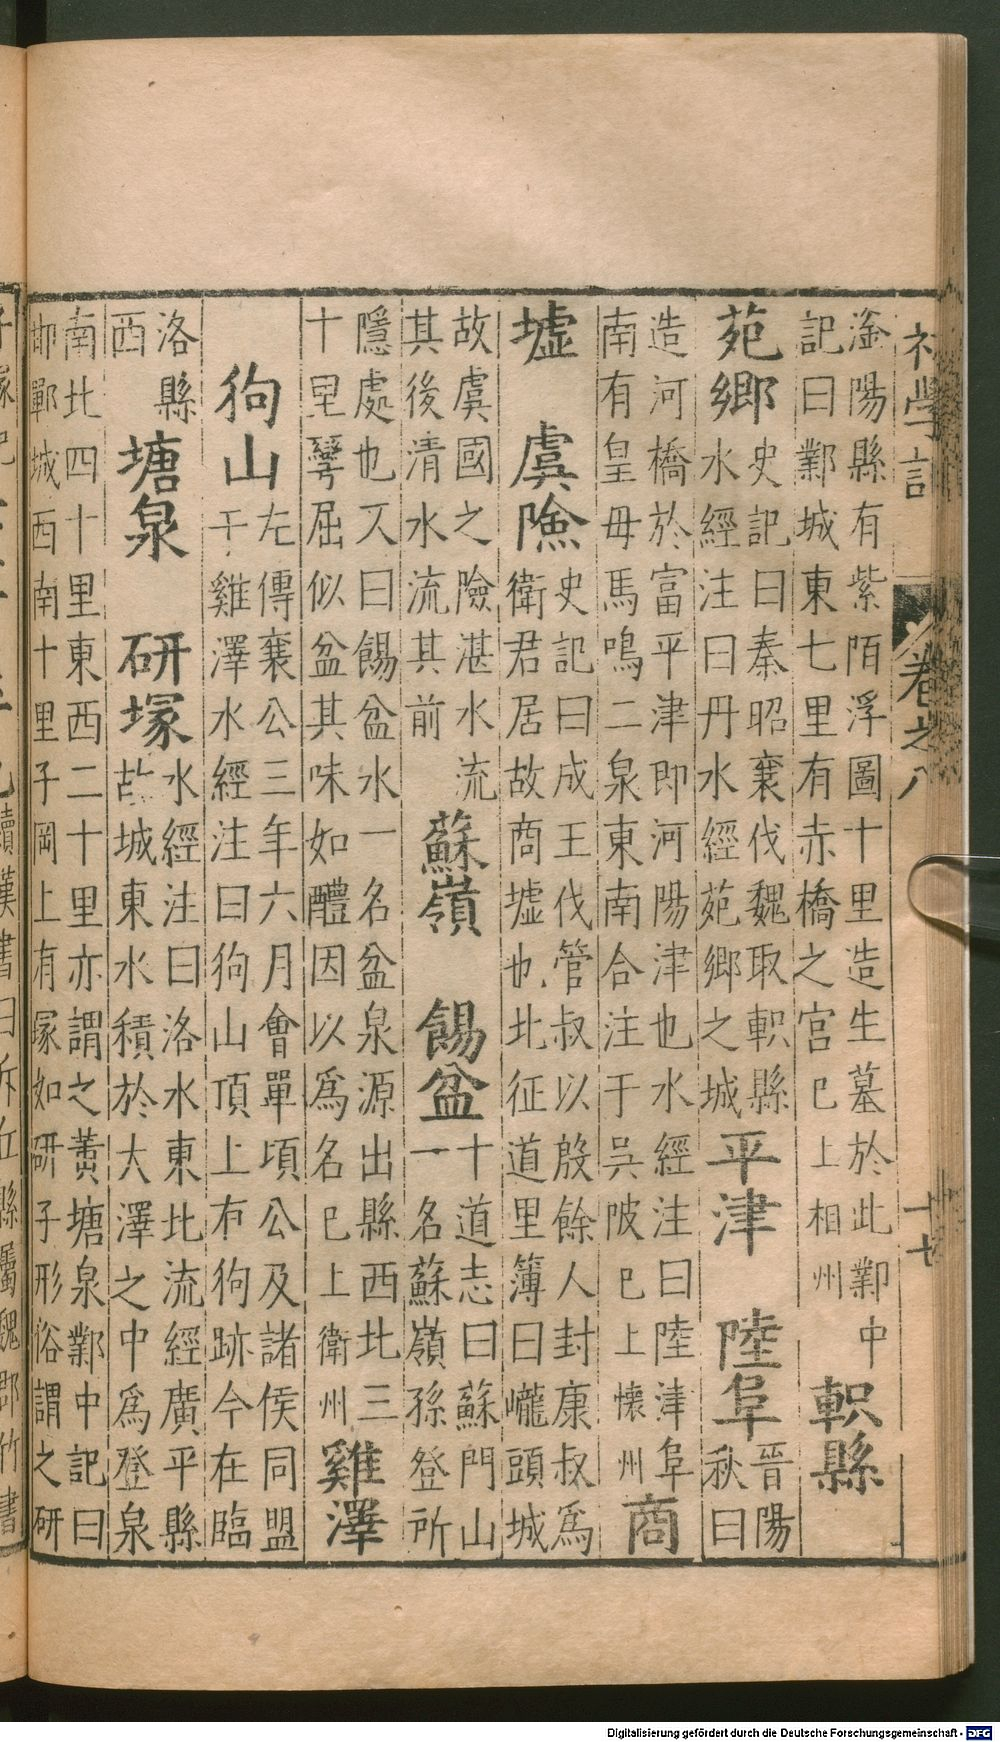 初學記 卷之八 十七
滏陽縣有紫陌浮圖十里造生墓於此鄴中
記曰鄴城東七里有赤橋之宫已上相州
軹縣
苑鄉
史記曰秦昭襄伐魏取軹縣
水經注曰丹水經苑鄉之城
平津 陸阜
晉陽
秋曰
造河橋於富平津即河陽津也水經注曰陸津阜
南有皇母馬鳴二泉東南合注于吳陂已上懷州
商
墟 虞險
史記曰成王伐管叔以殷餘人封康叔爲
衛君居故商墟也北征道里簿曰巃頭城
故虞國之險湛水流
其後清水流其前
蘇嶺 餳盆
十道志曰蘇門山
一名蘇嶺孫登所
隱處也又曰餳盆水一名盆泉源出縣西北三
十里彎屈似盆其味如醴因以爲名已上衛州
雞澤
狗山
左傳襄公三年六月會單頃公及諸侯同盟
于雞澤水經注曰狗山頂上有狗跡今在臨
洛縣
西
塘泉 研塚
水經注曰洛水東北流經廣平縣
故城東水積於大澤之中爲登泉
南北四十里東西二十里亦謂之黄塘泉鄴中記曰
邯鄲城西南十里子岡上有塚如研子形俗謂之研
續漢書曰斥丘縣屬魏郡竹書
Digitalisierung gefördert durch die Deutsche Forschungsgemeinschaft - DFG